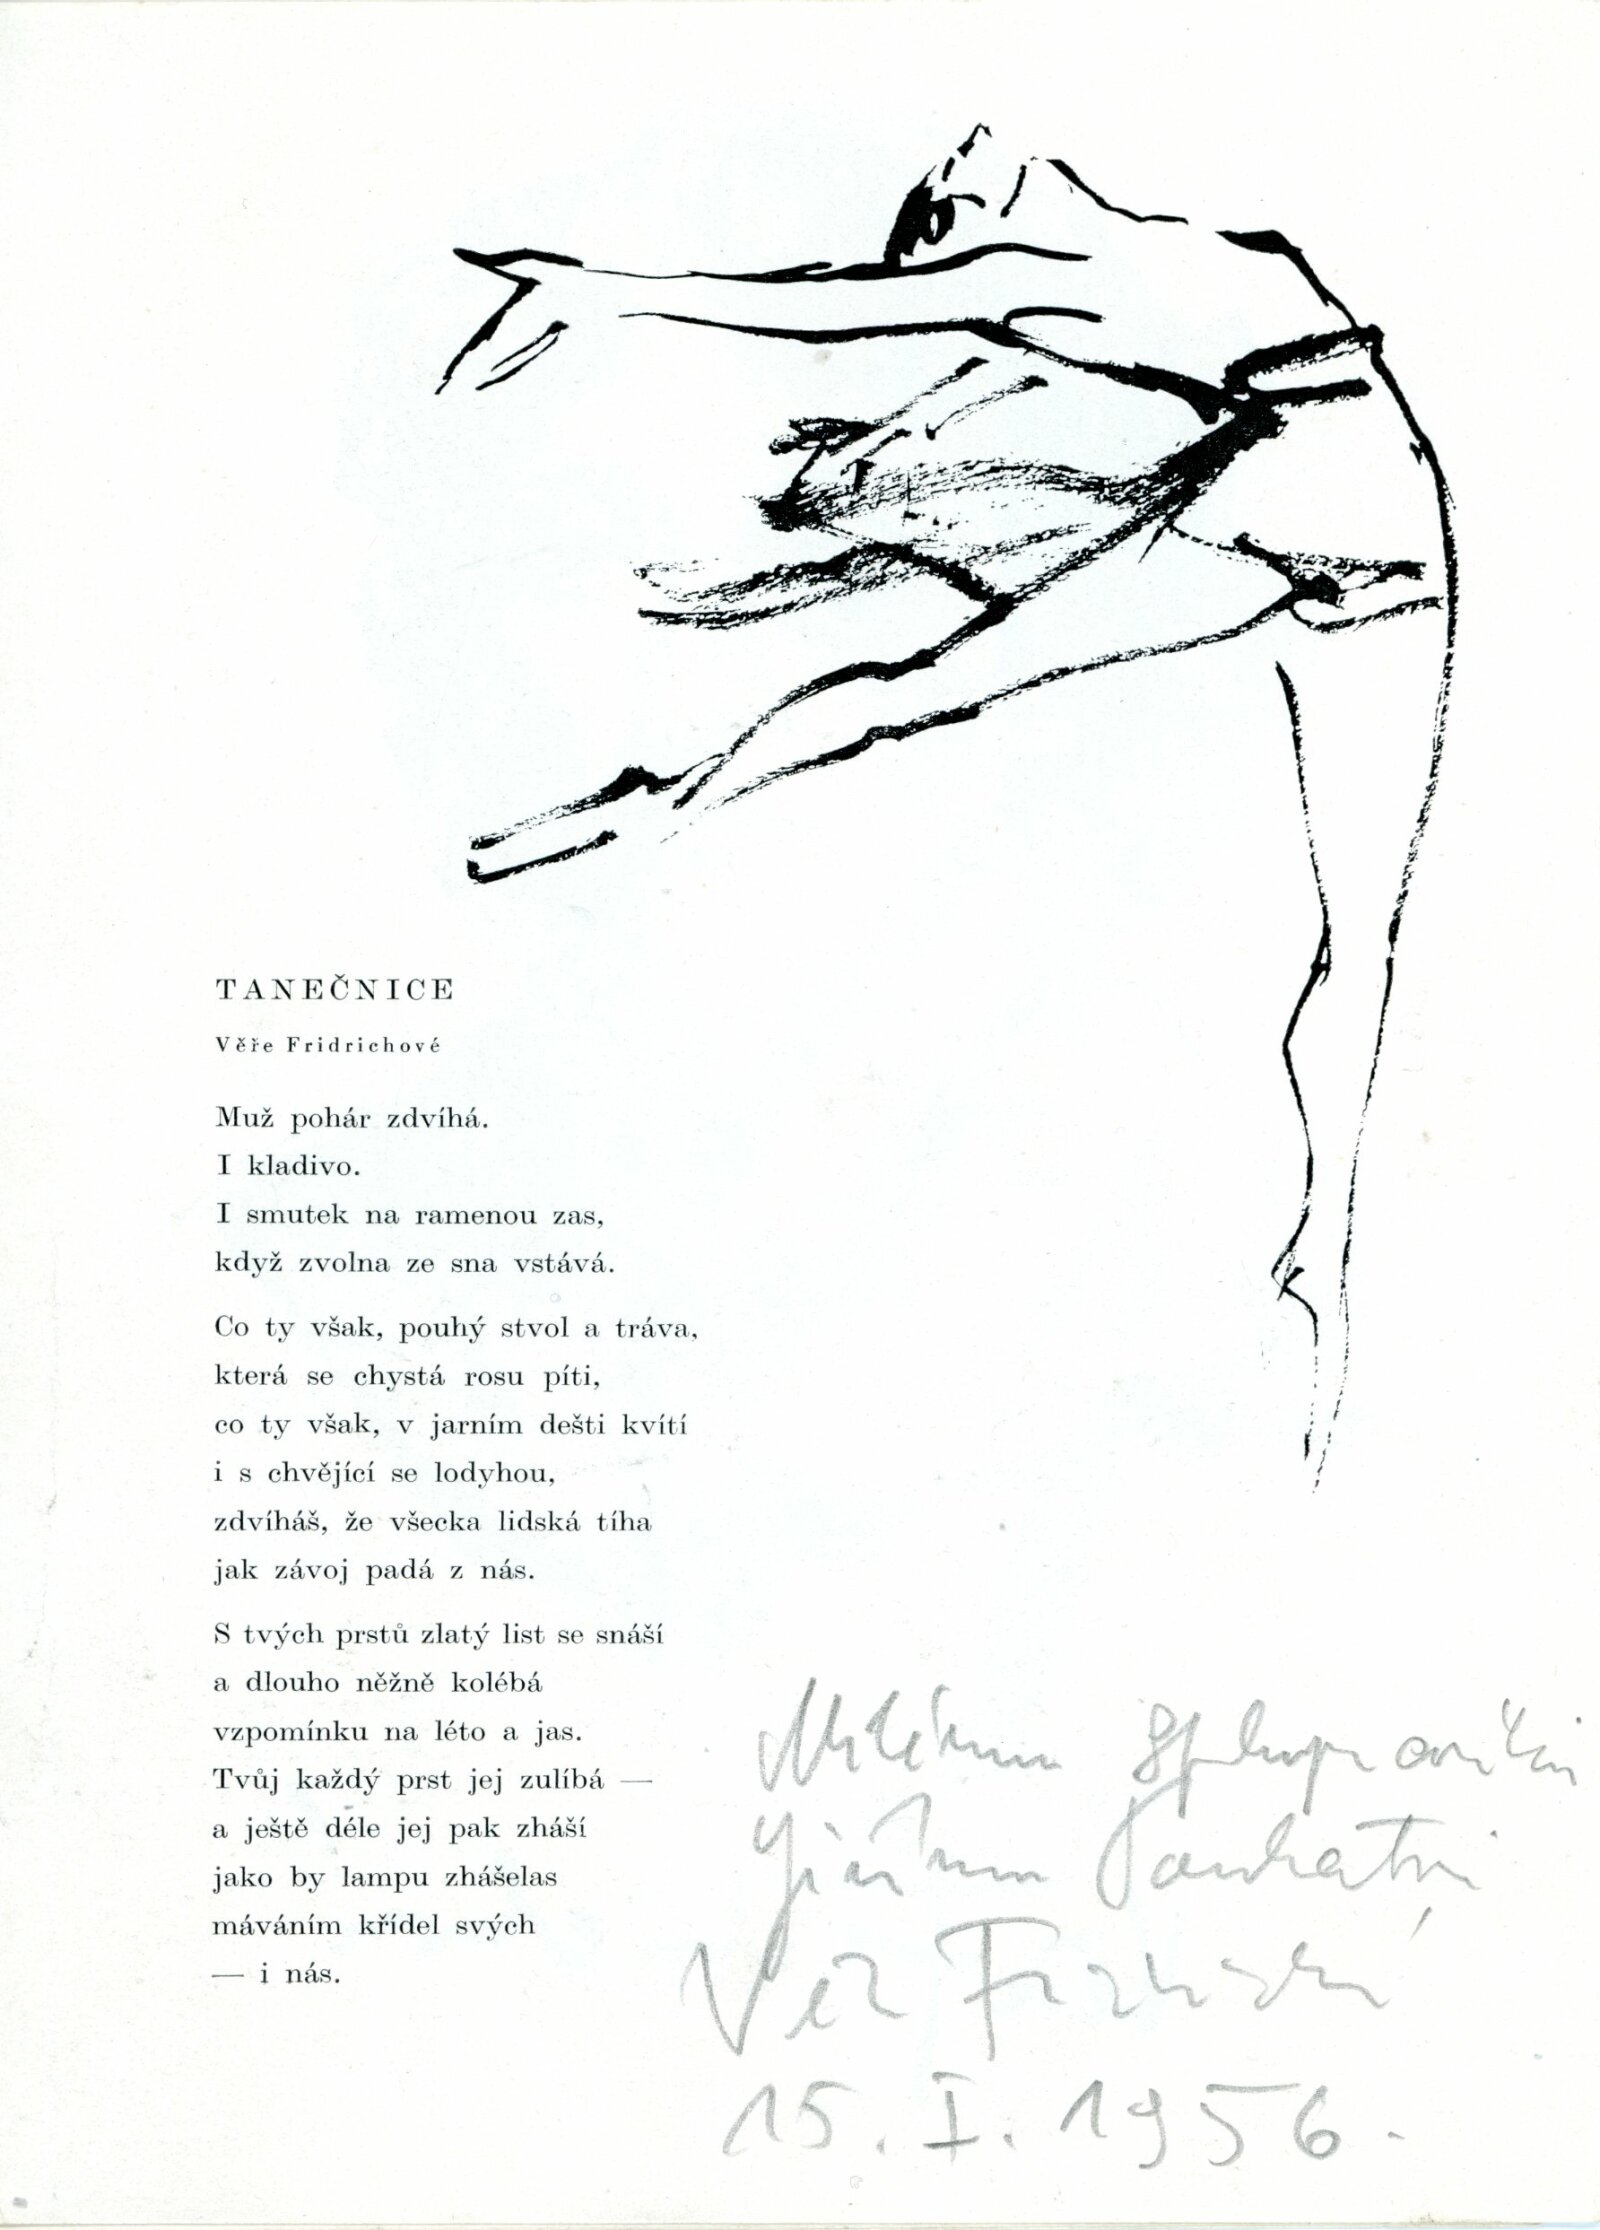 TANEČNICE
Věře Fridrichové
Muž pohár zdvíhá.
I kladivo.
I smutek na ramenou zas,
když zvolna ze sna vstává.
Co ty však, pouhý stvol a tráva,
která se chystá rosu píti,
co ty však, v jarním dešti kvítí
i s chvějící se lodyhou,
zdvíháš, že všecka lidská tíha
jak závoj padá z nás.
S tvých prstů zlatý list se snáší
a dlouho něžně kolébá
vzpomínku na léto a jas.
Tvůj každý prst jej zulíbá —
a ještě déle jej pak zháší
jako by lampu zhášelas
máváním křídel svých
— i nás.
Milému
15. I. 1956.